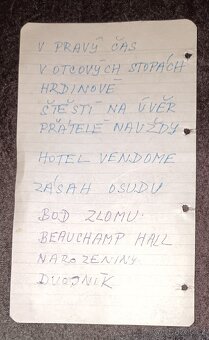 V PRAVÝ ČAS
V OTCOVÝCH STOPÁCH
HRDINOVÉ
ŠTĚSTÍ NA ÚVĚR
PŘÁTELÉ NAVŽDY
HOTEL VENDOME
ZÁSAH OSUDU
BOD ZLOMU
BEAUCHAMP HALL
NAROZENINY
DVOJNÍK